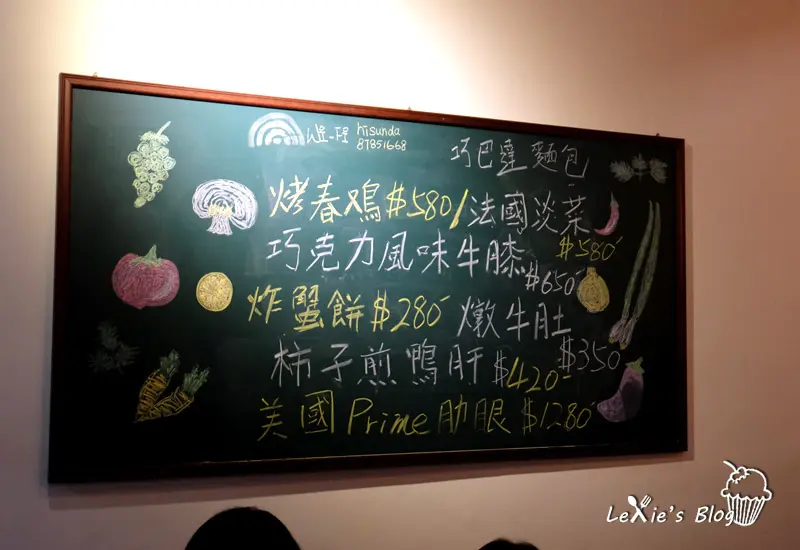 hisunda
87851668
巧巴達麵包
烤春鳮$580/法國淡菜
$580
巧克力風味牛膝
$650
炸蟹餅$280 燉牛肚
$350
柿子煎鴨肝$420
美國Prime肋眼$1280
LeXie's Blog